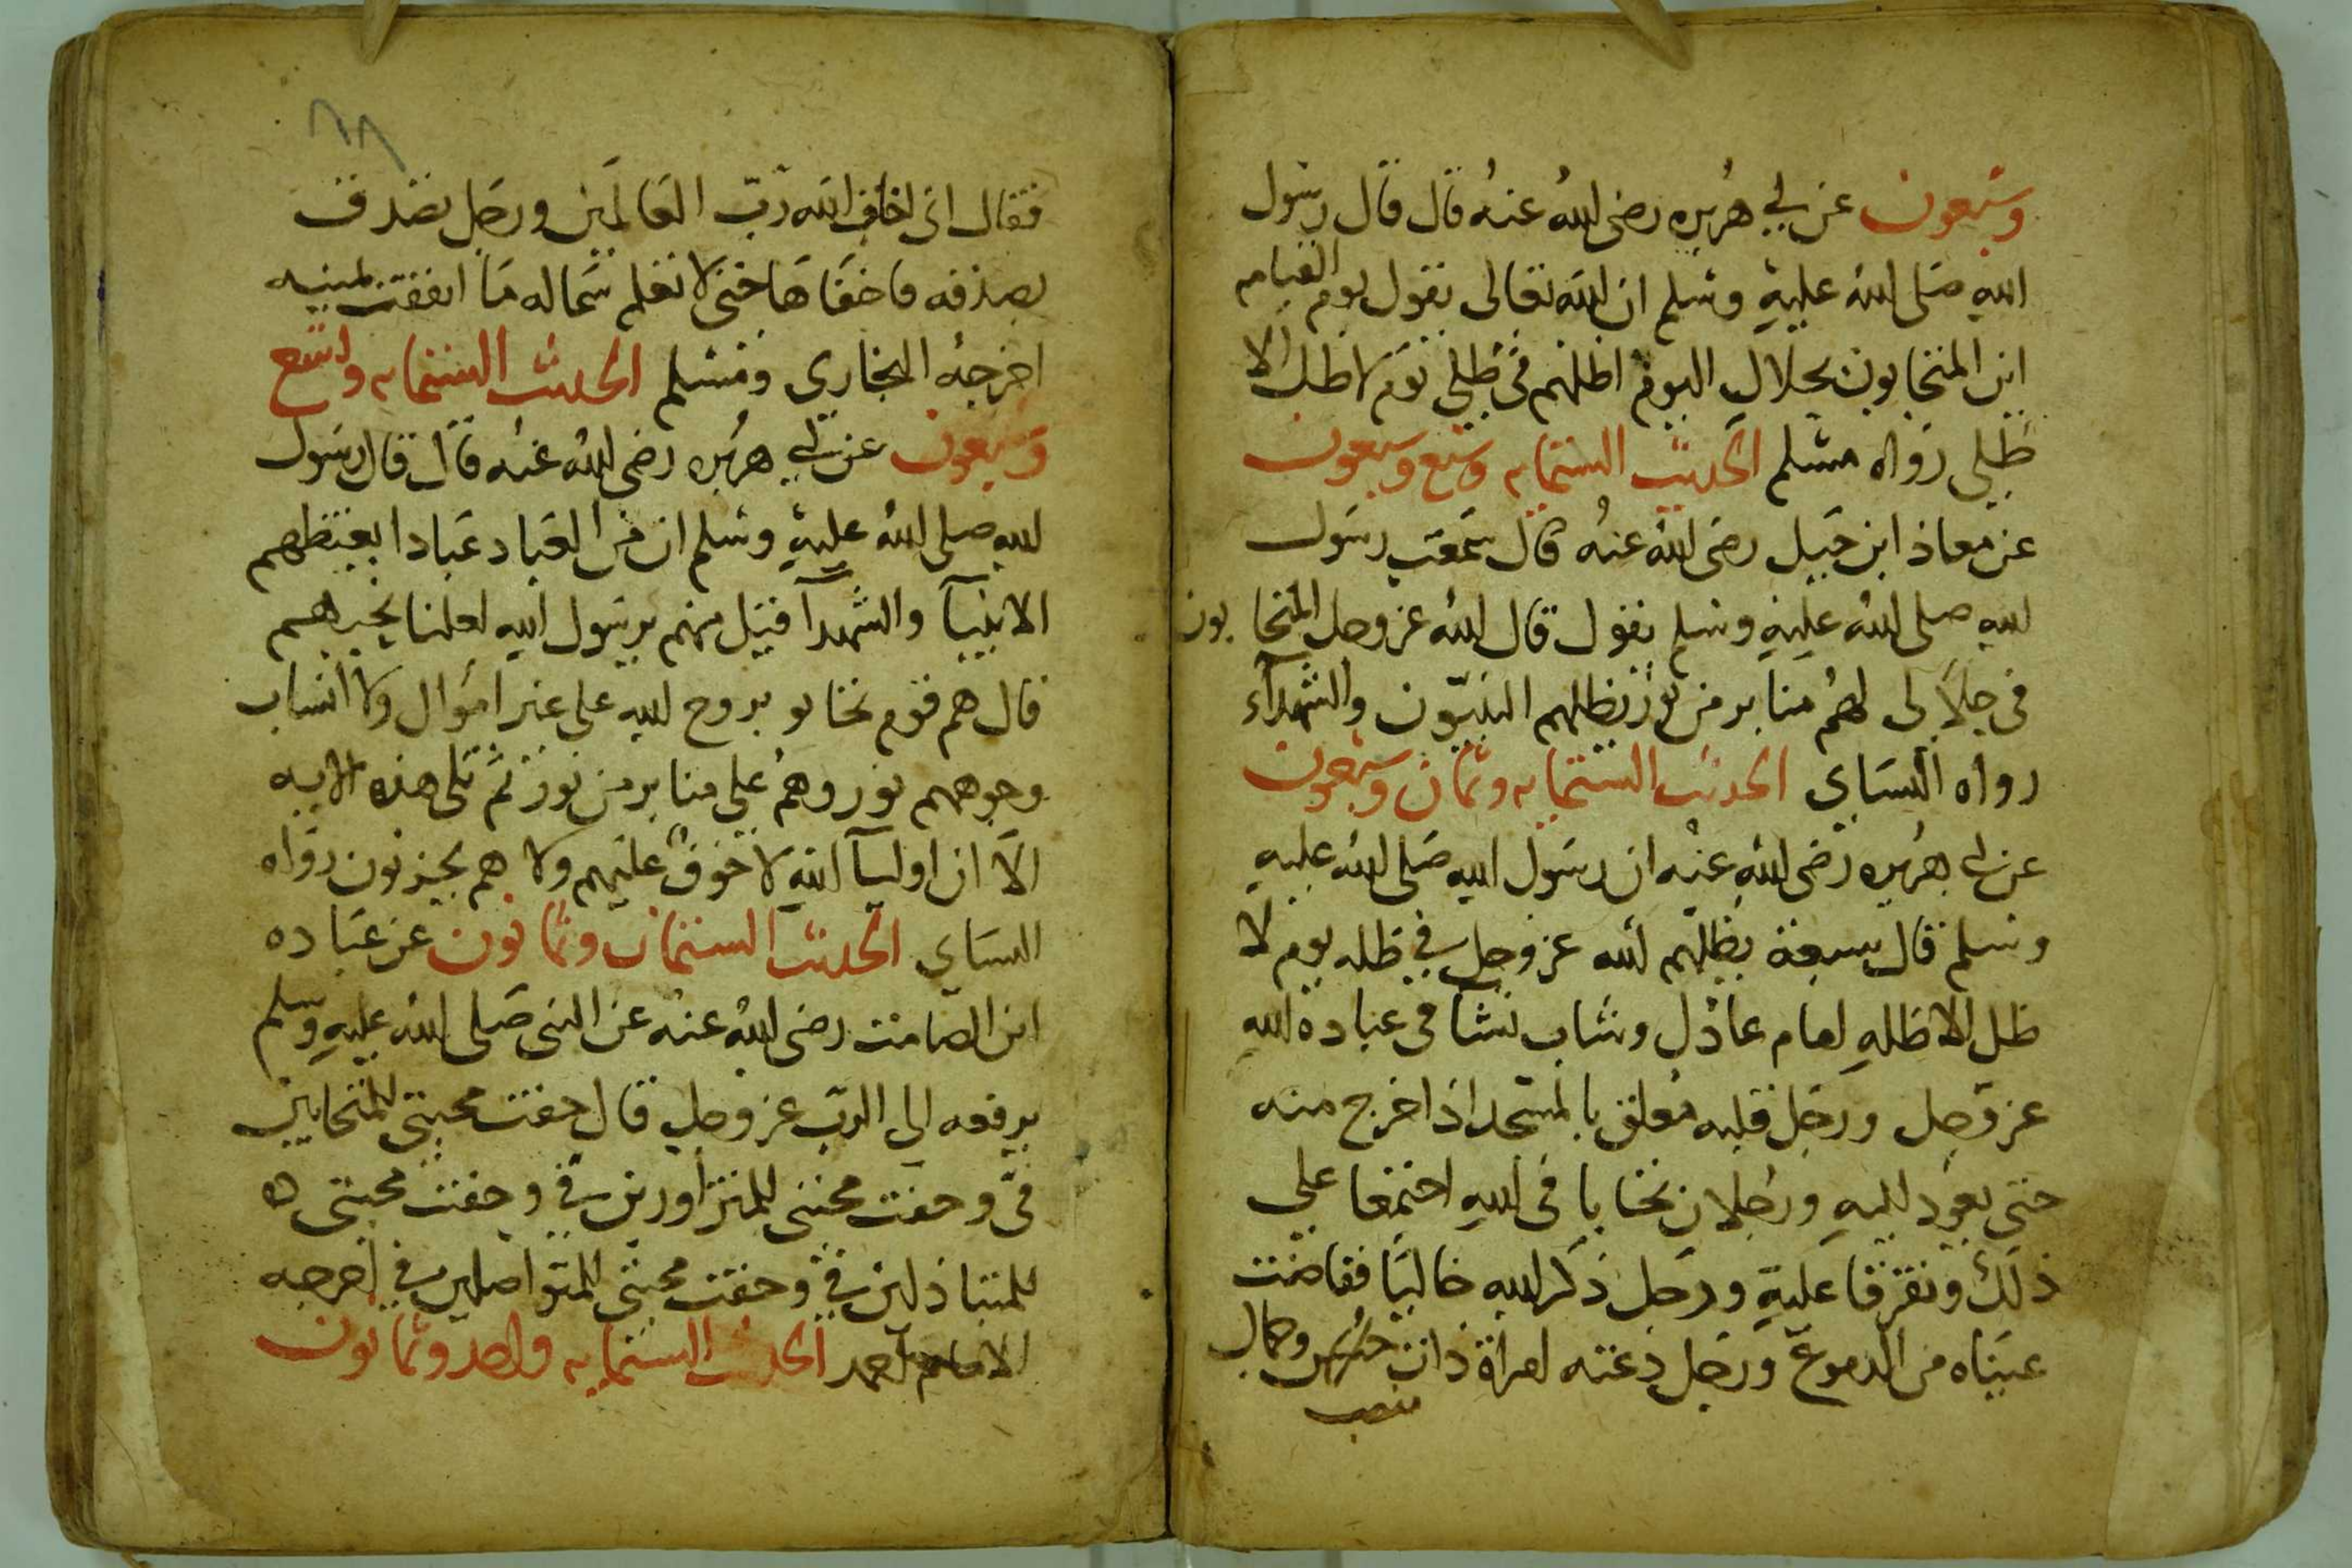 وسبعون عن ابي هريره رضى الله عنه قال قال رسول
الله صلى الله عليه وسلم ان الله تعالى يقول يوم القيامه
اين المتحابون بجلالي اليوم اظلهم فى ظلي يوم لا ظل الا
ظلي رواه مسلم الحديث الستمايه وسبع وسبعون
عن معاذ ابن جبل رضى الله عنه قال سمعت رسول
الله صلى الله عليه وسلم يقول قال الله عز وجل المتحابون
فى جلالى لهم منابر من نور يغظلهم النبيون والشهدآء
رواه النساي الحديث الستمايه وثمان وسبعون
عن ابي هريره رضى الله عنه ان رسول الله صلى الله عليه
وسلم قال سبعة يظلهم الله عز وجل في ظله يوم لا
ظل الا ظله امام عادل وشاب نشا فى عبادة الله
عز وجل ورجل قلبه معلق بالمسجد اذا خرج منه
حتى يعود اليه ورجلان تحابا فى الله اجتمعا على
ذلك وتفرقا عليه ورجل ذكر الله خاليا ففاضت
عيناه من الدموع ورجل دعته امراة ذات وجمال
منصب
٦٨
فقال انى اخاف الله رب العالمين ورجل تصدق
بصدقه فاخفاها حتى لا تعلم شماله ما انفقت يمينه
اخرجه البخارى ومسلم الحديث الستمايه وتسع
وسبعون عن ابي هريره رضى الله عنه قال قال رسول
الله صلى الله عليه وسلم ان من العباد عبادا يغبظهم
الانبيآ والشهدآ قيل منهم يرسول الله لعلنا نحبهم
قال هم قوم تحابو بروح الله على غير اموال ولا انساب
وجوههم نور وهم على منابر من نور ثم تلى هذه الايه
الا ان اوليآ الله لا خوف عليهم ولا هم يحزنون رواه
النساي الحديث الستمايه وثمانون عن عباده
ابن الصامت رضى الله عنه عن النبى صلى الله عليه وسلم
يرفعه الى الرب عز وجل قال حقت محبتى للمتحابين
فى وحقت محبتى للمتزاورين في وحقت محبتى
للمتباذلين في وحقت محبتى للمتواصلين في اخرجه
الامام احمد الحديث الستمايه واحد وثمانون